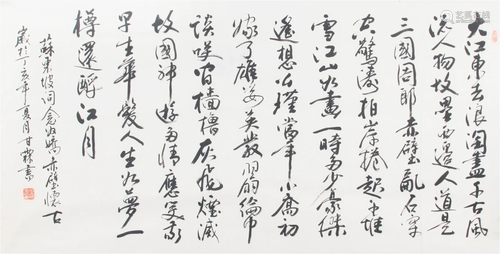 大江东去浪淘盡千古風
流人物故壘西邊人道是
三國周郎赤壁亂石穿
空驚濤拍岸捲起千堆
雪江山如畫一時多少豪傑
遙想公瑾當年小喬初
嫁了雄姿英發羽扇綸巾
談咲間檣櫓灰飛煙滅
故國神遊多情應笑我
早生華髮人生如夢一
樽還酹江月
蘇東坡詞念奴嬌赤壁懷古
歲於丁亥年夏月甘霖書